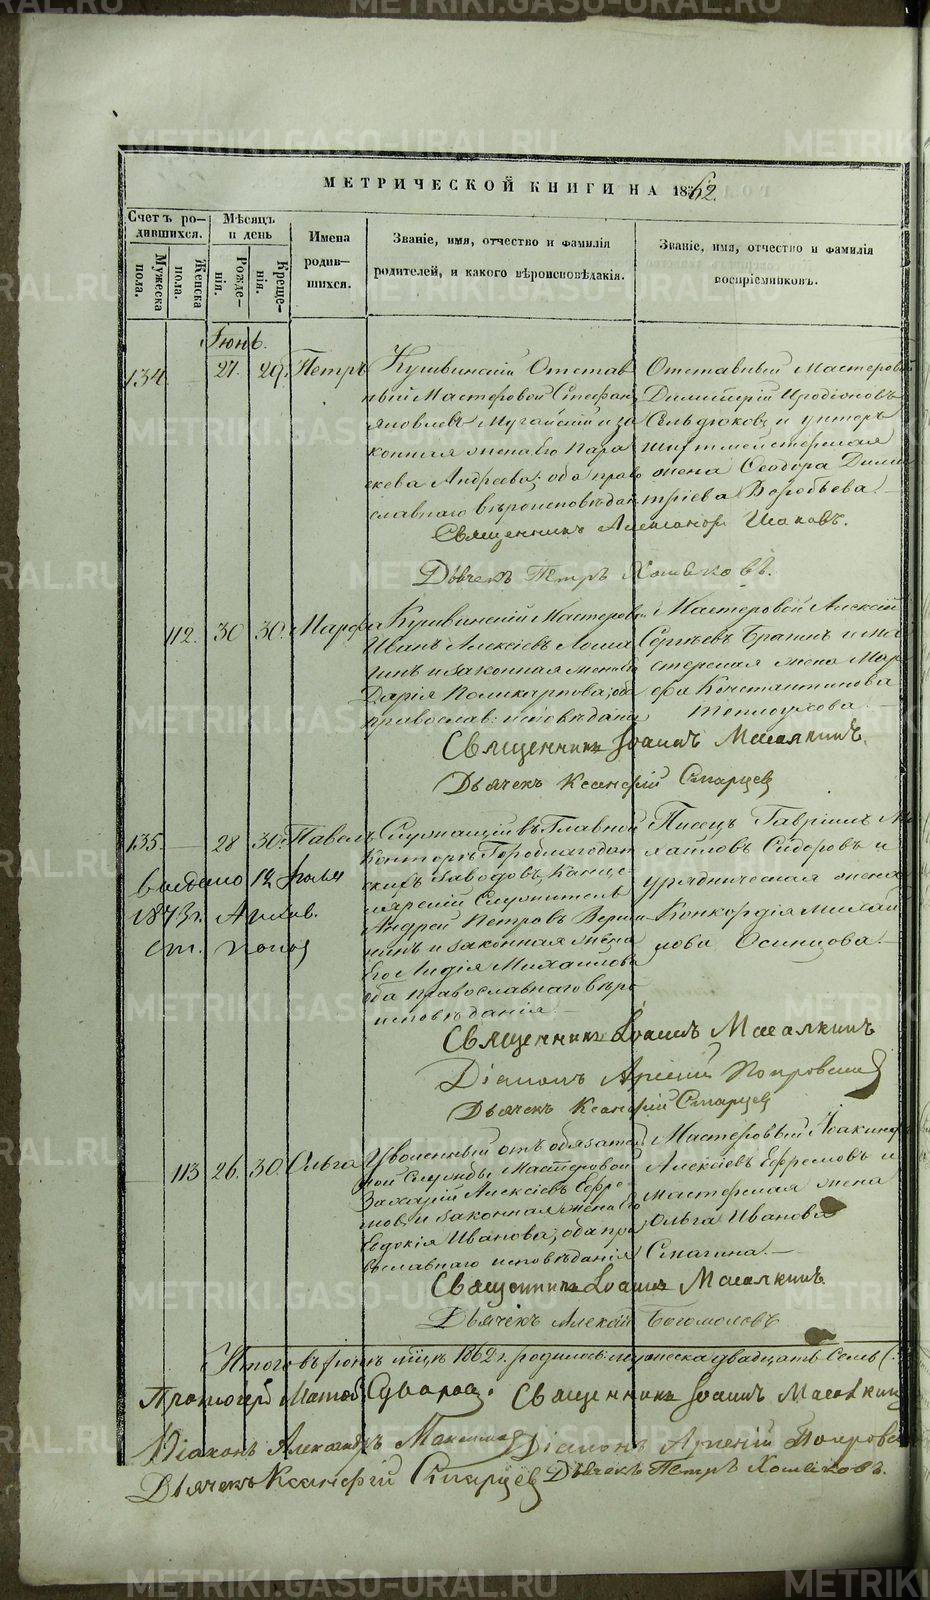 МЕТРИЧЕСКОЙ КНИГИ НА 1862.
Счетъ ро-
дившихся.
Мужеска
пола.
Женска
пола.
Мѣсяцъ
и день
Рожде-
нія.
Креще-
нія.
Имена
родив-
шихся.
Званіе, имя, отчество и фамилія
родителей, и какого вѣроисповѣданія.
Званіе, имя, отчество и фамилія
воспріемниковъ.
Іюнь.
134. 27. 29. Петръ
Кушвинскій Отстав
ный Мастеровой Стефанъ
Яковлевъ Мугайскій и за
конная жена его Пара
скева Андреева; оба право
славнаго вѣроисповѣдан
Отставный Мастеровой
Димитрій Иродіоновъ
Сельдюковъ и унтеръ
шихтмейстерская
жена Ѳеодора Дими
тріева Воробьева.
Священникъ Александръ
Дьячекъ Петръ Хомяковъ.
112. 30 30. Марѳа
Кушвинскій Мастеровой
Иванъ Алексѣевъ
и законная жена его
Дарія Поликарпова; оба
православ: исповѣданія
Мастеровой Алексій
Сергѣевъ и ма
стерская жена Мар
ѳа Константинова
Теплоухова.
Священникъ Іоаннъ Масалкинъ.
Дьячекъ Ксенофій Старцев
135. 28 30. Павелъ
Служащій въ Главной
Конторѣ Гороблагодат
скихъ заводовъ, Канце
лярскій Служитель
Андрей Петровъ
и законная жена
его Лидія Михайлова
оба православнаго вѣро
исповѣданія.
Писецъ Гавріилъ Ми
хайловъ Сидоровъ и
урядническая жена
Конкордія Михай
лова Осинцова.
выдано 12 Іюля
1873 г.
Священникъ Іоаннъ Масалкинъ
Діаконъ Арсеній Покровскій
Дьячекъ Ксенофій Старцев
113 26. 30. Ольга
Уволенный отъ обязател
ной службы Мастеровой
Захарій Алексѣевъ Ефре
мовъ и законная жена его
Евдокія Иванова; оба пра
вославнаго исповѣданія
Мастеровый Іоакинфъ
Алексѣевъ Ефремовъ и
мастерская жена
Ольга Иванова
Смагина.
Священникъ Іоаннъ Масалкинъ.
Дьячекъ Алексій Богомоловъ
Итого въ Іюнѣ м͠цѣ 1862 г. родилось: мужеска двадцать Семь
Священникъ Іоаннъ Масалкинъ
Діаконъ Александръ
Діаконъ Арсеній Покровс
Дьячекъ Ксенофій Старцев
Дьячекъ Петръ Хомяковъ.
METRIKI.GASO-URAL.RU